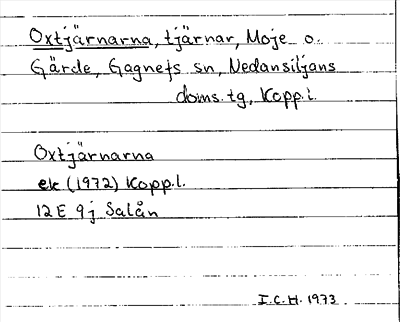 Oxtjärnarna, tjärnar, Moje o.
Gärde, Gagnefs sn, Nedansiljans
doms. tg, Kopp.l.
Oxtjärnarna
ek (1972) Kopp.l.
12 E 9j Salån
I.C.H. 1973